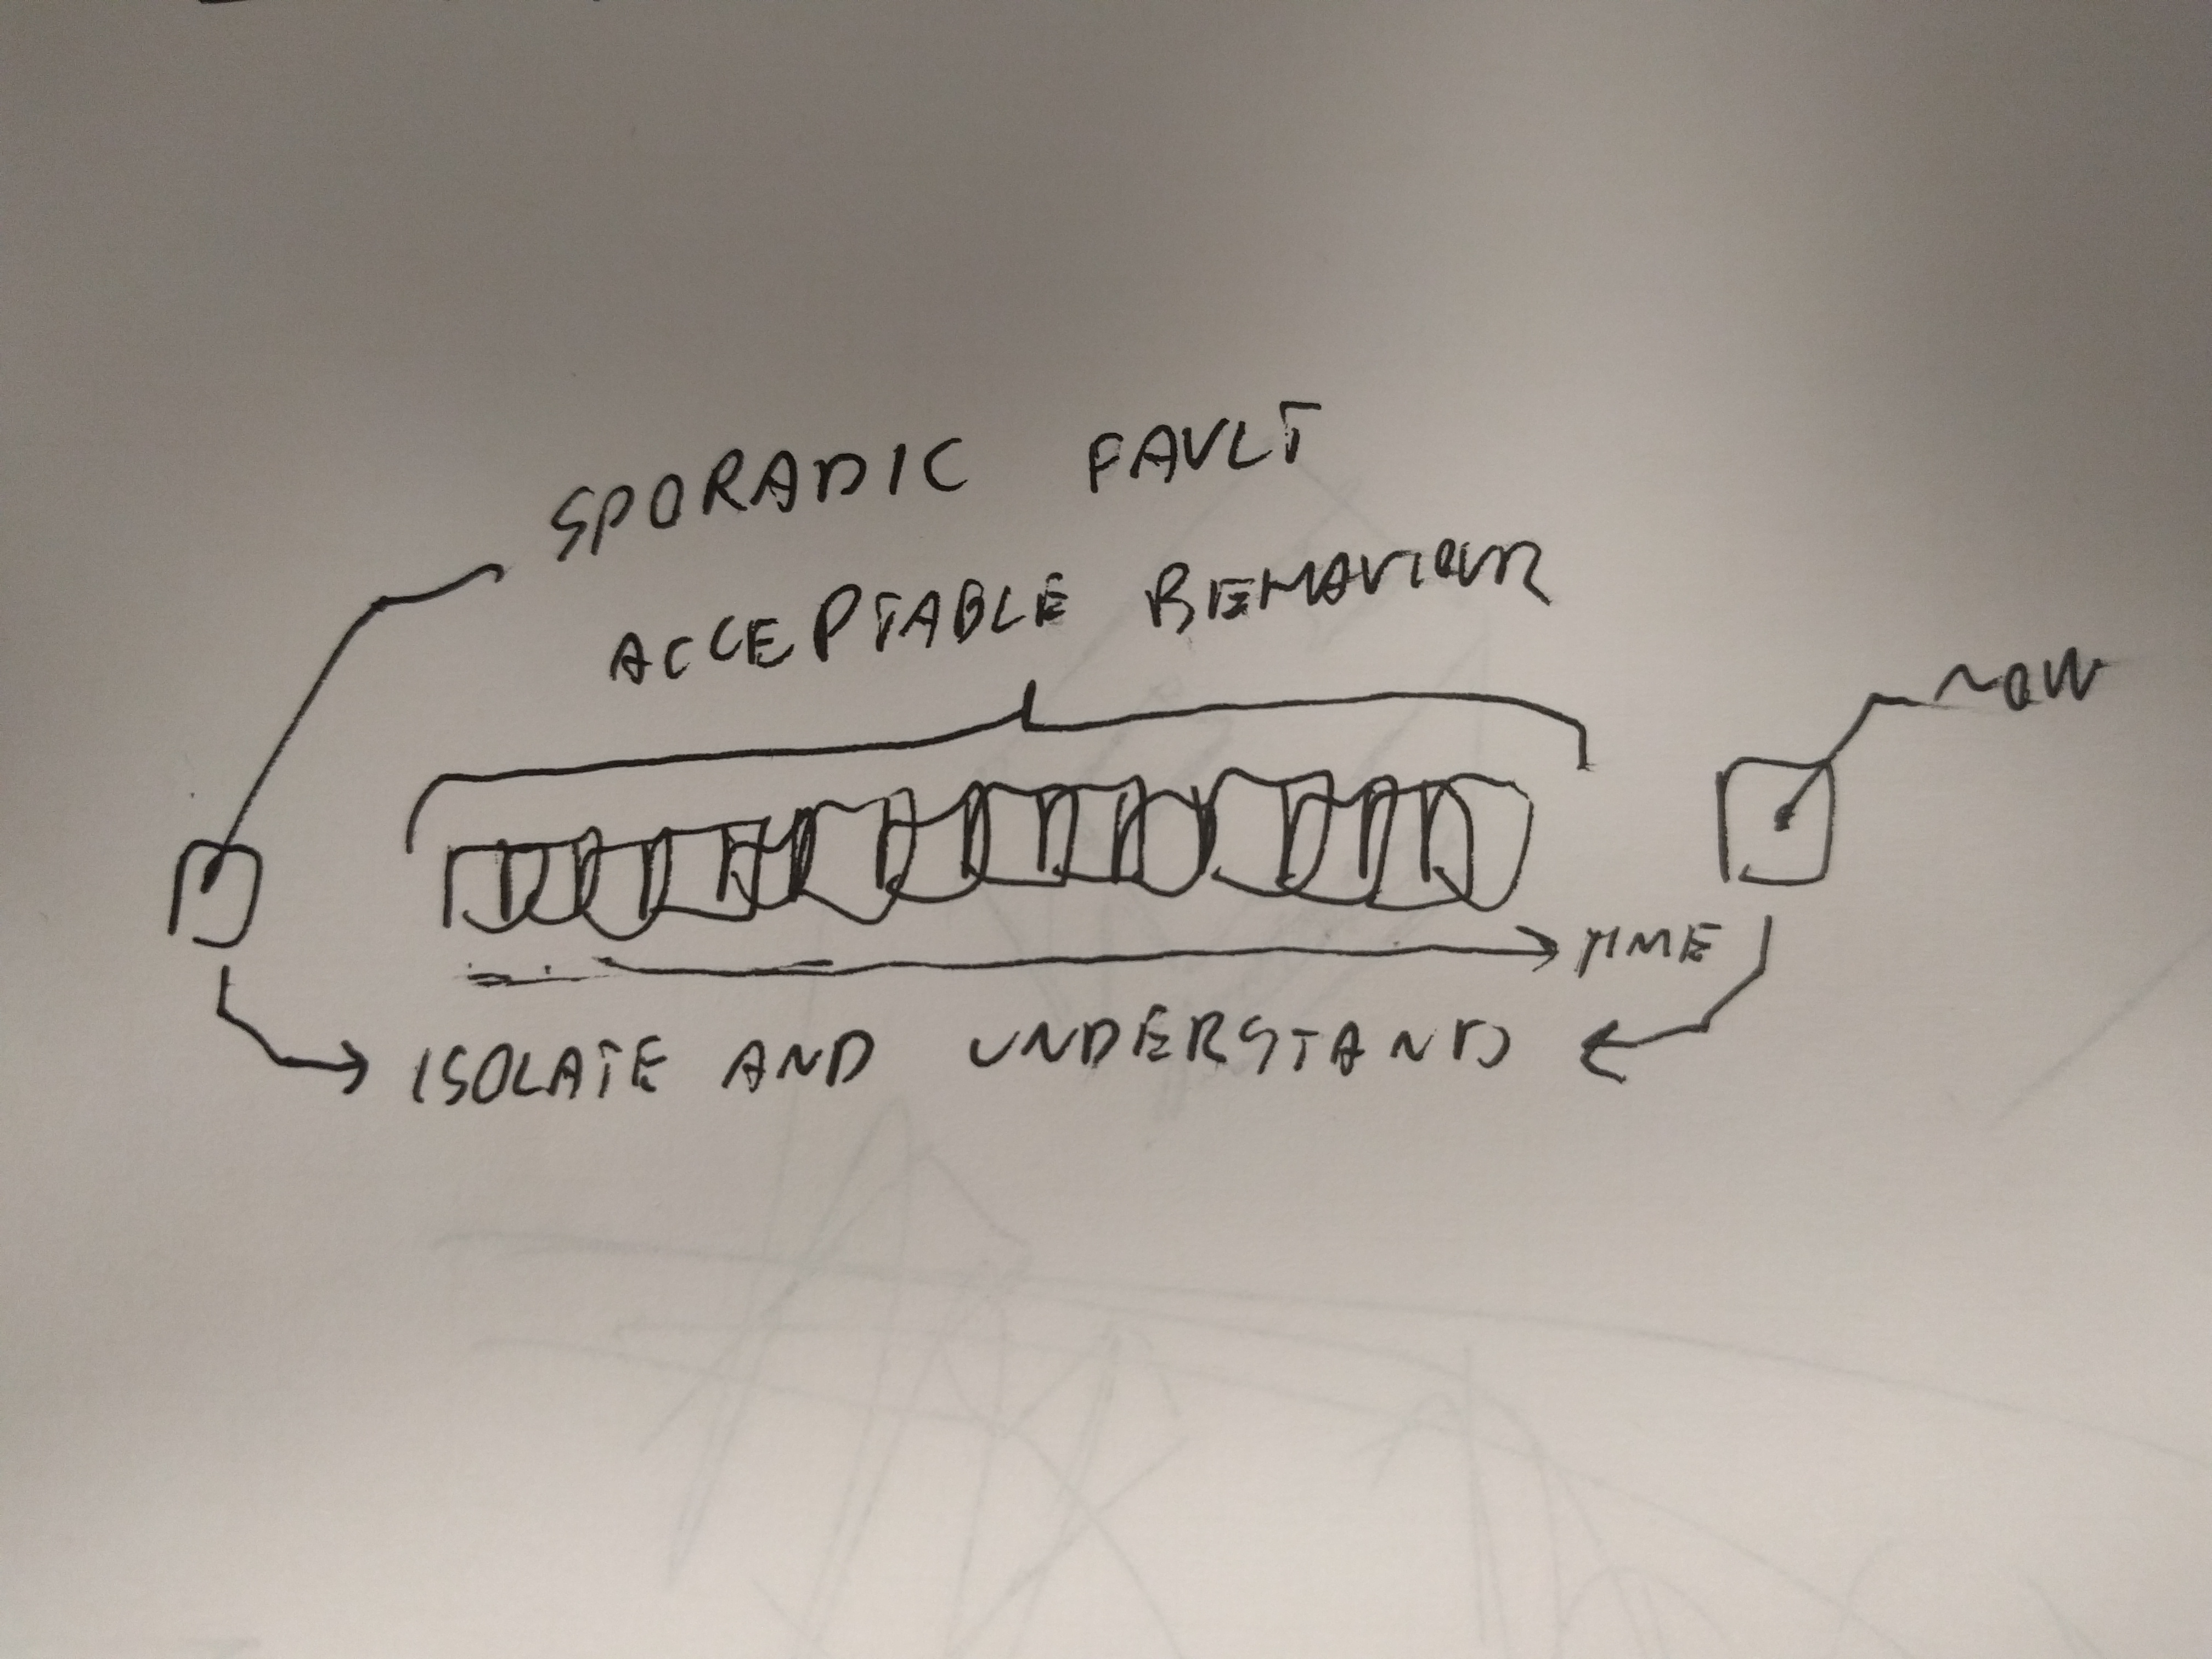 SPORADIC FAULT
ACCEPTABLE BEHAVIOUR
NOW
TIME
ISOLATE AND UNDERSTAND